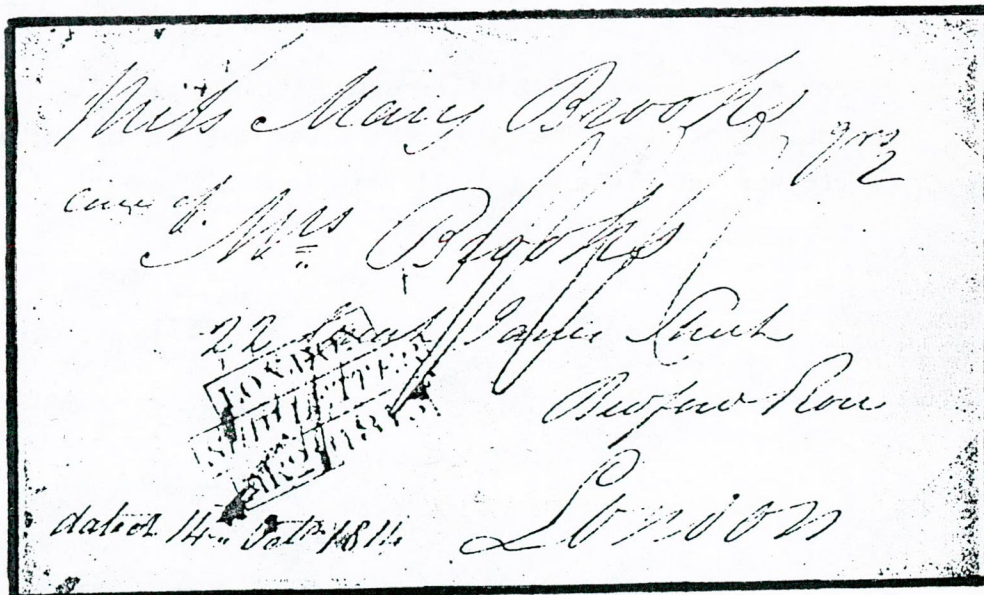 Miss Mary Brooks
care of Mrs Brooks
22 Great James Street
Bedford Row
LONDON
SHIP LETTER
London
dated 14